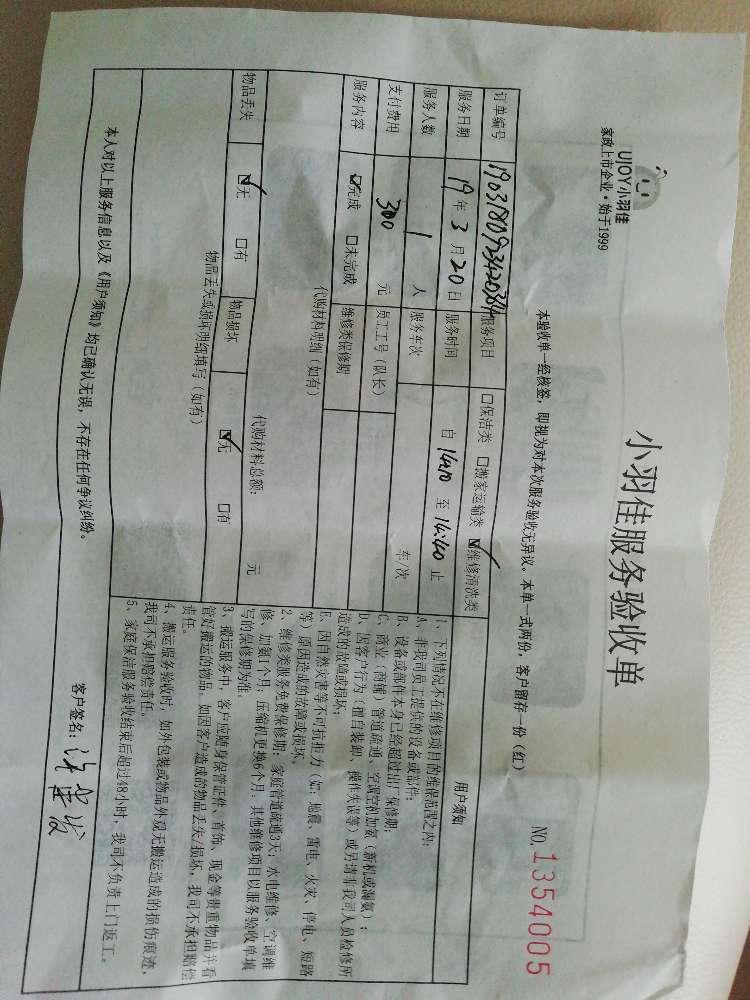 UJOY小羽佳
家政上市企业·始于1999
小羽佳服务验收单
NO.1354005
本验收单一经核签，即视为对本次服务验收无异议。本单一式两份，客户留存一份（红）
订单编号
服务项目 □保洁类 □搬家运输类 ☑维修清洗类
服务日期 19年3月20日 服务时间 自 14:10 至 14:40 止
服务人数 1 人 服务车次 车/次
支付费用 300 元 员工工号（队长）
服务内容 ☑完成 □未完成 维修类保修期
代购材料明细（如有）
代购材料总额： 元
物品丢失 ☑无 □有 物品损坏 ☑无 □有
物品丢失或损坏明细填写（如有）
用户须知
1、下列情况不在维修项目的维保范围之内：
A、非我司员工提供的设备或部件；
B、设备或部件本身已经超过出厂保修期；
C、商业（商铺）管道疏通、空调空和加氨（新机或漏氨）；
D、因客户行为（擅自装卸、操作失误等）或另请非我司人员检修所
造成的故障或损坏；
E、因自然灾害等不可抗拒力（如：地震、雷电、火灾、停电、短路
等）原因造成的故障或损坏。
2、维修类服务免费保修期：家庭管道疏通3天；水电维修、空调维
修、加氨1个月，压缩机更换6个月，其他维修项目以服务验收单填
写的保修期为准。
3、搬运服务中，客户应随身保管证件、首饰、现金等贵重物品并看
管好搬运的物品。如因客户造成的物品丢失/损坏，我司不承担赔偿
责任。
4、搬运服务验收时，如外包装或物品外观无搬运造成的损伤痕迹，
我司不承担赔偿责任。
5、家庭保洁服务验收结束后超过48小时，我司不负责上门返工。
本人对以上服务信息以及《用户须知》均已确认无误，不存在任何争议纠纷。
客户签名：